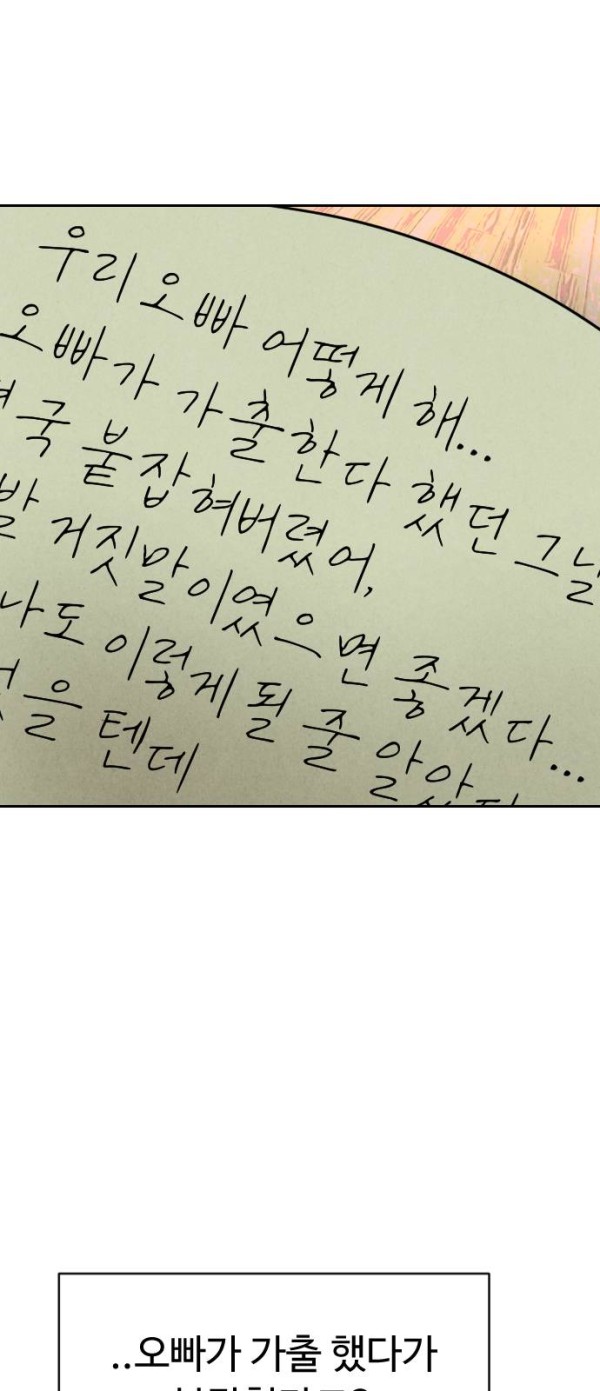 우리 오빠 어떻게 해...
오빠가 가출한다 했던 그날
국 붙잡혀버렸어,
발 거짓말이였으면 좋겠다...
나도 이렇게 될 줄 알았
을 텐데
..오빠가 가출 했다가